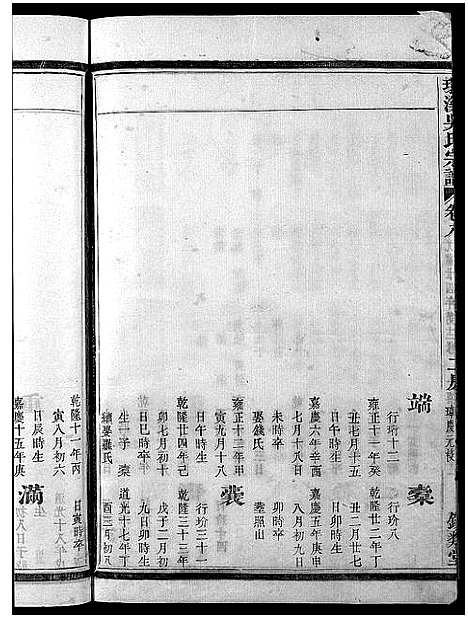 吳氏宗譜 卷八 二房
端
行玠十二
雍正十一年癸
丑七月十五
日午時生
嘉慶六年辛酉
七月十八日
未時卒
娶錢氏
雍正十三年甲
寅九月十八
日午時生
乾隆廿四年己
卯七月初十
日巳時卒
生一子 棻
繼娶龔氏
乾隆十一年丙
寅八月初六
日辰時生
嘉慶十五年庚
棻
行玢八
乾隆廿二年丁
丑二月廿七
日卯時生
嘉慶五年庚申
八月初九日
卯時卒
塟照山
裘
行玢三十一
乾隆三十三年
戊子二月初
九日卯時生
道光十七年丁
酉三月初八
日寅時卒
滿